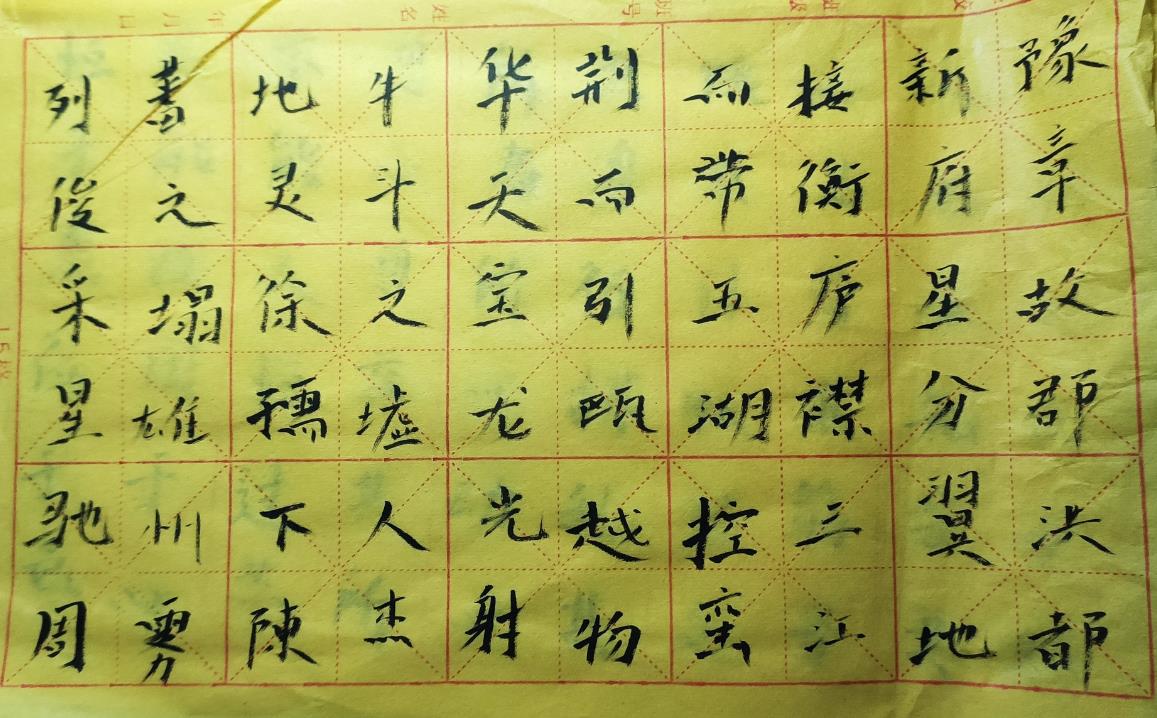 豫章故郡洪都
新府星分翼地
接衡庐襟三江
而帶五湖控蛮
荆而引瓯越物
华天宝龙光射
牛斗之墟人杰
地灵徐孺下陳
蕃之塌雄州雾
列俊采星驰周